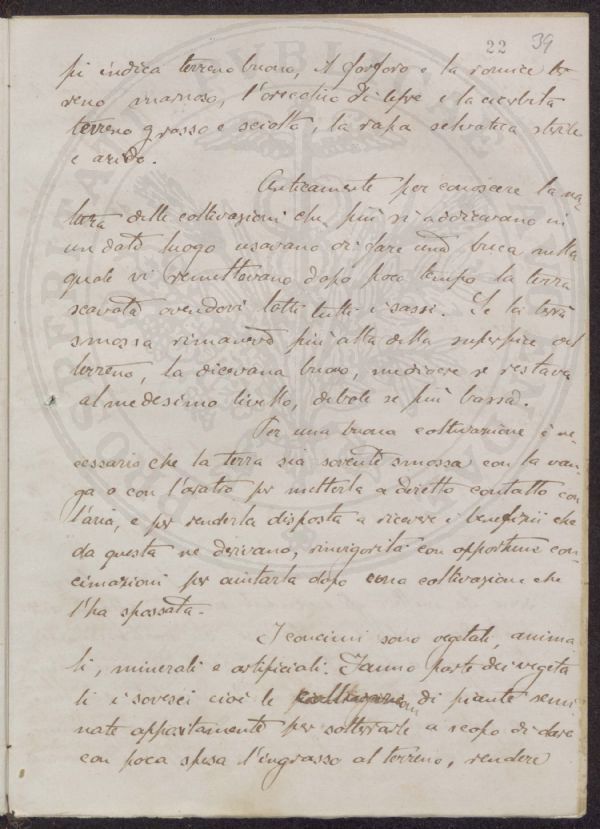 22 39
pi indica terreno buono, il forforo e la romice ter
reno marnoso, l'orecchio di lepre e la cicerbita
terreno grasso e sciolto, la rapa selvatica sterile
e arido.
Anticamente per conoscere la na-
tura delle coltivazioni che più si addicevano in
un dato luogo usavano di fare una buca, nella
quale vi rimettevano dopo poco tempo la terra
scavata avendovi tolti tutti i sassi. Se la terra
smossa rimaneva più alta della superfice del
terreno, la dicevana buono, mediocre se restava
al medesimo livello, debole se più bassa.
Per una buona coltivazione è ne
cessario che la terra sia sovente smossa con la van-
ga o con l'aratro per metterla a diretto contatto con
l'aria, e per renderla disposta a ricevere i benefizii che
da questa ne derivano, rinvigorita con opportune con-
cimazioni per aiutarla dopo una coltivazione che
l'ha spossata.
I concimi sono vegetali, anima-
li, minerali e artificiali. Fanno parte dei vegeta
li i sovesci cioè le di piante semi-
nate appositamente per sotterrarle a scopo di dare
con poca spesa l'ingrasso al terreno, rendere
PROSPERITATI PVBLICAE